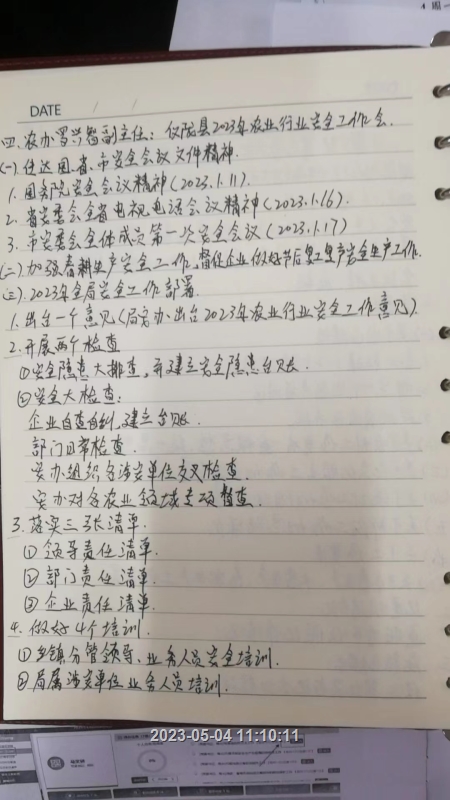 DATE / /
四. 农办罗兴智副主任：仪陇县2023年农业行业安全工作会.
(一). 传达国、省、市安全会议文件精神.
1. 国务院安全会议精神(2023.1.11).
2. 省安委会全省电视电话会议精神(2023.1.16).
3. 市安委会全体成员第一次安全会议(2023.1.17)
(二) 加强春耕生产安全工作, 督促企业做好节后复工复产安全生产工作.
(三). 2023年全局安全工作部署.
1. 出台一个意见(局安办出台2023年农业行业安全工作意见).
2. 开展两个检查
①安全隐患大排查, 并建立安全隐患台账.
②安全大检查:
企业自查自纠, 建立台账.
部门日常检查.
安办组织各涉安单位交叉检查.
安办对各农业领域专项督查.
3. 落实三张清单.
① 领导责任清单.
② 部门责任清单.
③ 企业责任清单.
4. 做好4个培训.
①乡镇分管领导、业务人员安全培训.
②局属涉安单位业务人员培训.
2023-05-04 11:10:11